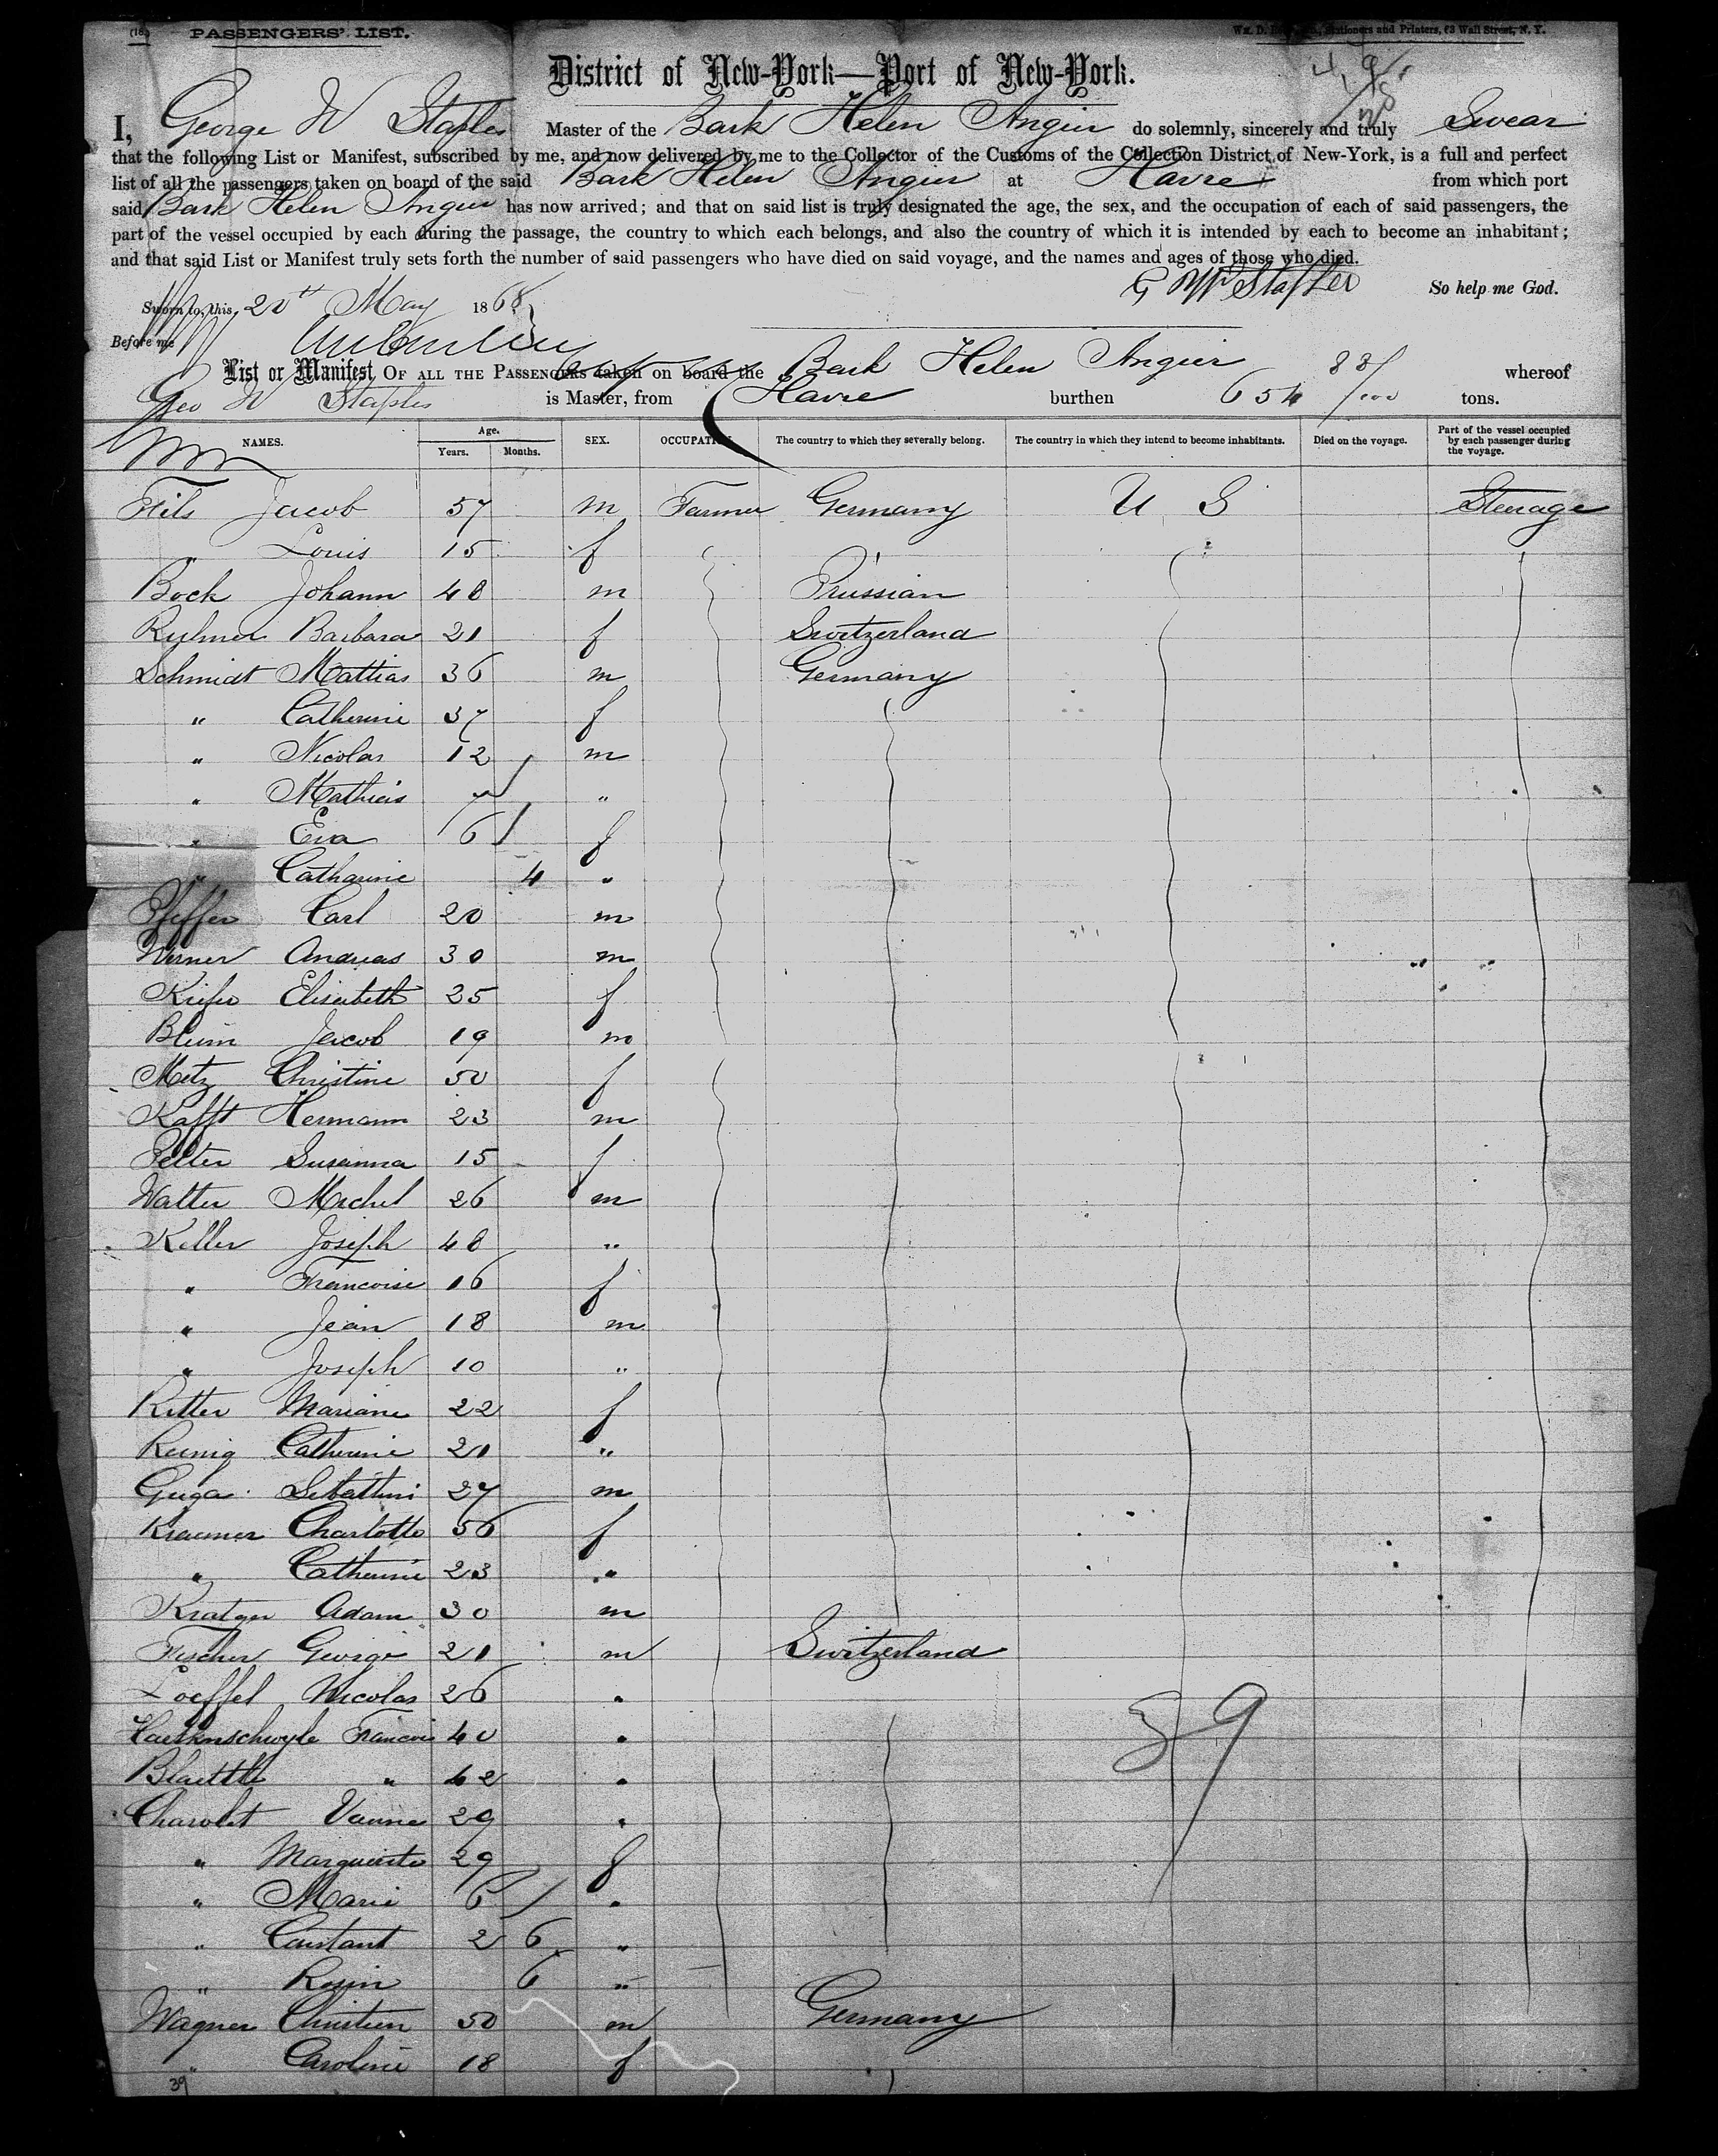 (18.) PASSENGERS' LIST.
District of New-York—Port of New-York.
I, George W Staples Master of the Bark Helen Angier do solemnly, sincerely and truly Swear
that the following List or Manifest, subscribed by me, and now delivered by me to the Collector of the Customs of the Collection District of New-York, is a full and perfect
list of all the passengers taken on board of the said Bark Helen Angier at Havre from which port
said Bark Helen Angier has now arrived; and that on said list is truly designated the age, the sex, and the occupation of each of said passengers, the
part of the vessel occupied by each during the passage, the country to which each belongs, and also the country of which it is intended by each to become an inhabitant;
and that said List or Manifest truly sets forth the number of said passengers who have died on said voyage, and the names and ages of those who died.
G W Staples So help me God.
Sworn to, this 20th May 1868
Before me
List or Manifest OF ALL THE PASSENGERS taken on board the Bark Helen Angier whereof
Geo W Staples is Master, from Havre burthen 654 88/100 tons.
NAMES. Age. Years. Months. SEX. OCCUPATION. The country to which they severally belong. The country in which they intend to become inhabitants. Died on the voyage. Part of the vessel occupied by each passenger during the voyage.
Fils Jacob 57 m Farmer Germany U S Steerage
" Louis 15 f
Bock Johann 48 m Prussian
Barbara 21 f Switzerland
Schmidt Mattias 36 m Germany
" Catherine 37 f
" Nicolas 12 m
" Mathias 7 "
" Eva 6 f
" Catharine 4 "
Pfeffer Carl 20 m
Werner Andreas 30 m
Kiefer Elisabeth 25 f
Blum Jacob 19 m
Metz Christine 50 f
Kafft Hermann 23 m
Petter Susanna 15 f
Walter Michel 26 m
Keller Joseph 48 "
" Francoise 16 f
" Jean 18 m
" Joseph 10 "
Ritter Mariane 22 f
Catherine 21 "
27 m
Kraemer Charlotte 56 f
" Catherine 23 "
Adam 30 m
Fischer George 21 m Switzerland
Loeffel Nicolas 26 "
Francois 40 "
Blaettle " 42 "
29 "
" Marguerite 29 f
" Marie 6 "
" Constant 2 6 "
" Rosin 6 "
Wagner Christien 50 m Germany
" Caroline 18 f
39
39